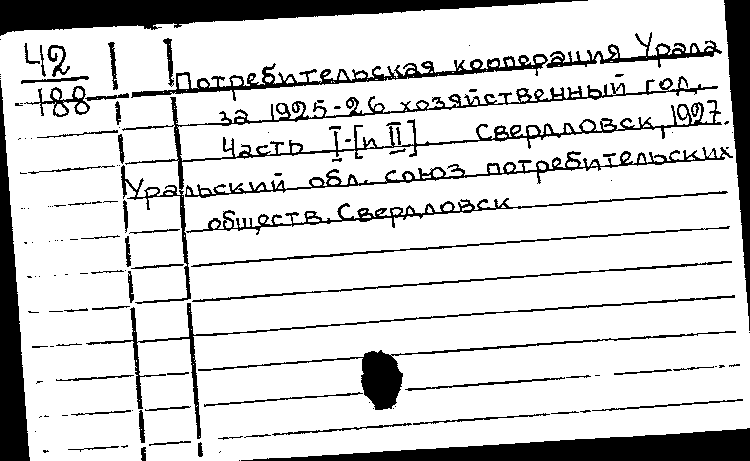 42
188
Потребительская кооперация Урала
за 1925-26 хозяйственный год.
Часть I-[и II]. Свердловск, 1927.
Уральский обл. союз потребительских
обществ. Свердловск.